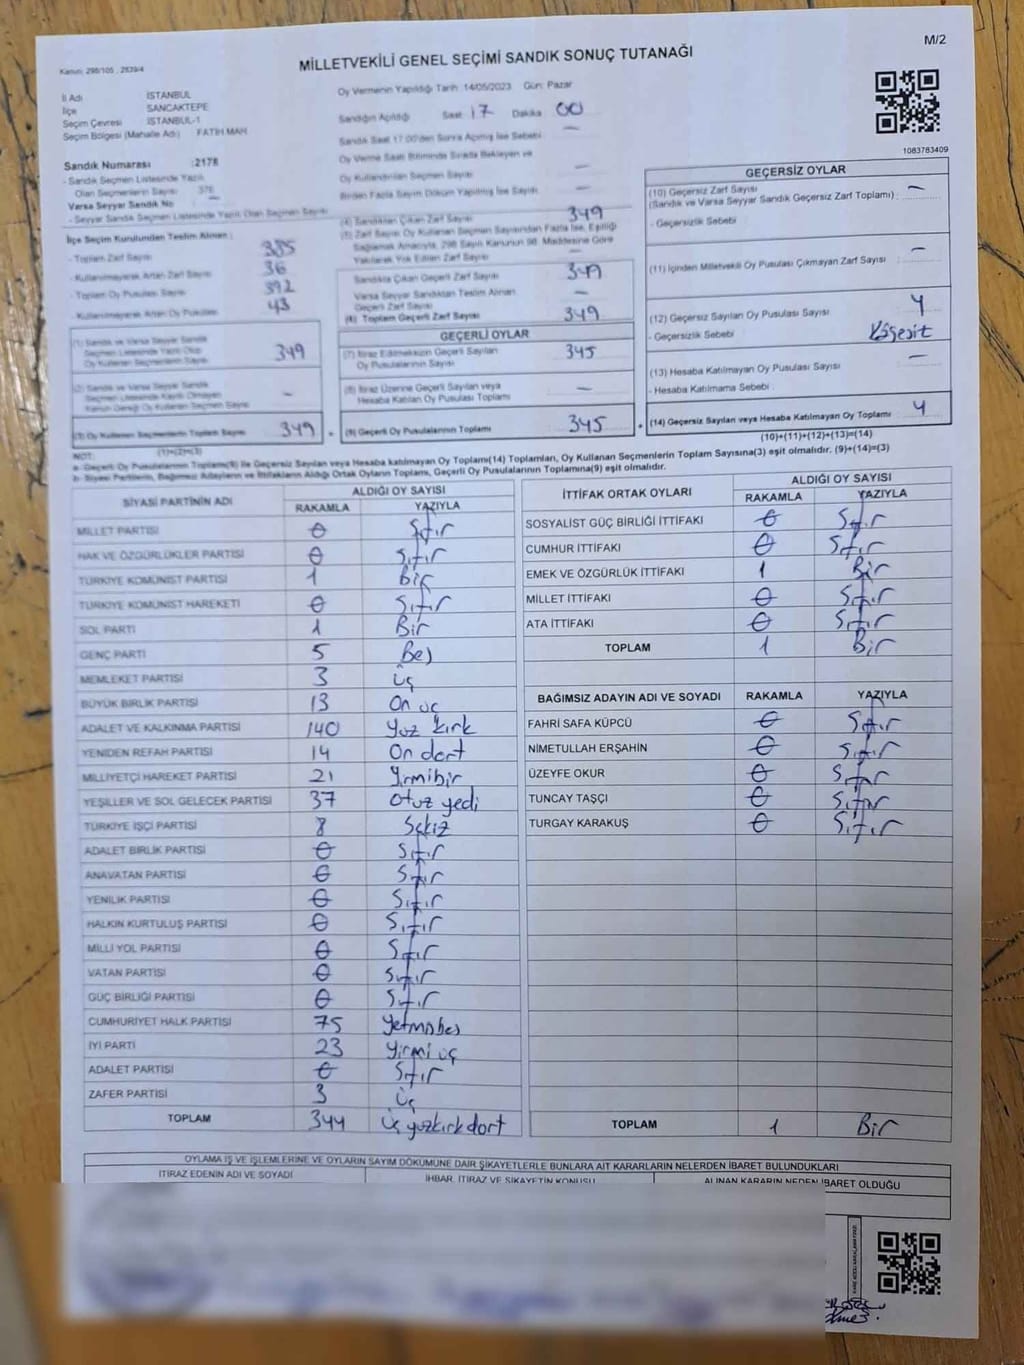 M/2
Kanun: 298/105, 2839/4
MİLLETVEKİLİ GENEL SEÇİMİ SANDIK SONUÇ TUTANAĞI
İl Adı İSTANBUL
İlçe SANCAKTEPE
Seçim Çevresi İSTANBUL-1
Seçim Bölgesi (Mahalle Adı) FATİH MAH.
Sandık Numarası :2178
- Sandık Seçmen Listesinde Yazılı
Olan Seçmenlerin Sayısı 376
Varsa Seyyar Sandık No —
- Seyyar Sandık Seçmen Listesinde Yazılı Olan Seçmen Sayısı
İlçe Seçim Kurulundan Teslim Alınan :
- Toplam Zarf Sayısı 385
- Kullanılmayarak Artan Zarf Sayısı 36
- Toplam Oy Pusulası Sayısı 392
- Kullanılmayarak Artan Oy Pusulası 43
(1) Sandık ve Varsa Seyyar Sandık
Seçmen Listesinde Yazılı Olup
Oy Kullanan Seçmenlerin Sayısı 349
(2) Sandık ve Varsa Seyyar Sandık
Seçmen Listesinde Kayıtlı Olmayan
Kanun Gereği Oy Kullanan Seçmen Sayısı —
(3) Oy Kullanan Seçmenlerin Toplam Sayısı 349
(1)+(2)=(3)
Oy Vermenin Yapıldığı Tarih 14/05/2023 Gün: Pazar
Sandığın Açıldığı Saat 17 Dakika 00
Sandık Saat 17.00'den Sonra Açılmış İse Sebebi —
Oy Verme Saati Bitiminde Sırada Bekleyen ve
Oy Kullandırılan Seçmen Sayısı —
Birden Fazla Sayım Döküm Yapılmış İse Sayısı —
(4) Sandıktan Çıkan Zarf Sayısı 349
(5) Zarf Sayısı Oy Kullanan Seçmen Sayısından Fazla İse, Eşitliği
Sağlamak Amacıyla, 298 Sayılı Kanunun 98. Maddesine Göre
Yakılarak Yok Edilen Zarf Sayısı —
Sandıkta Çıkan Geçerli Zarf Sayısı 349
Varsa Seyyar Sandıktan Teslim Alınan
Geçerli Zarf Sayısı —
(6) Toplam Geçerli Zarf Sayısı 349
GEÇERLİ OYLAR
(7) İtiraz Edilmeksizin Geçerli Sayılan
Oy Pusulasının Sayısı 345
(8) İtiraz Üzerine Geçerli Sayılan veya
Hesaba Katılan Oy Pusulası Toplamı —
(9) Geçerli Oy Pusulalarının Toplamı 345
1083783409
GEÇERSİZ OYLAR
(10) Geçersiz Zarf Sayısı
(Sandık ve Varsa Seyyar Sandık Geçersiz Zarf Toplamı) : —
- Geçersizlik Sebebi :
(11) İçinden Milletvekili Oy Pusulası Çıkmayan Zarf Sayısı —
(12) Geçersiz Sayılan Oy Pusulası Sayısı 4
- Geçersizlik Sebebi
(13) Hesaba Katılmayan Oy Pusulası Sayısı —
- Hesaba Katılmama Sebebi :
(14) Geçersiz Sayılan veya Hesaba Katılmayan Oy Toplamı 4
(10)+(11)+(12)+(13)=(14)
NOT:
a- Geçerli Oy Pusulalarının Toplamı(9) ile Geçersiz Sayılan veya Hesaba katılmayan Oy Toplamı(14) Toplamları, Oy Kullanan Seçmenlerin Toplam Sayısına(3) eşit olmalıdır. (9)+(14)=(3)
b- Siyasi Partilerin, Bağımsız Adayların ve İttifakların Aldığı Ortak Oyların Toplamı, Geçerli Oy Pusulalarının Toplamına(9) eşit olmalıdır.
SİYASİ PARTİNİN ADI ALDIĞI OY SAYISI
RAKAMLA YAZIYLA
MİLLET PARTİSİ 0 Sıfır
HAK VE ÖZGÜRLÜKLER PARTİSİ 0 Sıfır
TÜRKİYE KOMÜNİST PARTİSİ 1 Bir
TÜRKİYE KOMÜNİST HAREKETİ 0 Sıfır
SOL PARTİ 1 Bir
GENÇ PARTİ 5 Beş
MEMLEKET PARTİSİ 3 üç
BÜYÜK BİRLİK PARTİSİ 13 On üç
ADALET VE KALKINMA PARTİSİ 140 yüz kırk
YENİDEN REFAH PARTİSİ 14 On dört
MİLLİYETÇİ HAREKET PARTİSİ 21 yirmibir
YEŞİLLER VE SOL GELECEK PARTİSİ 37 Otuz yedi
TÜRKİYE İŞÇİ PARTİSİ 8 Sekiz
ADALET BİRLİK PARTİSİ 0 Sıfır
ANAVATAN PARTİSİ 0 Sıfır
YENİLİK PARTİSİ 0 Sıfır
HALKIN KURTULUŞ PARTİSİ 0 Sıfır
MİLLİ YOL PARTİSİ 0 Sıfır
VATAN PARTİSİ 0 Sıfır
GÜÇ BİRLİĞİ PARTİSİ 0 Sıfır
CUMHURİYET HALK PARTİSİ 75 yetmişbeş
İYİ PARTİ 23 yirmi üç
ADALET PARTİSİ 0 Sıfır
ZAFER PARTİSİ 3 üç
TOPLAM 344 üç yüzkırkdört
İTTİFAK ORTAK OYLARI ALDIĞI OY SAYISI
RAKAMLA YAZIYLA
SOSYALİST GÜÇ BİRLİĞİ İTTİFAKI 0 Sıfır
CUMHUR İTTİFAKI 0 Sıfır
EMEK VE ÖZGÜRLÜK İTTİFAKI 1 Bir
MİLLET İTTİFAKI 0 Sıfır
ATA İTTİFAKI 0 Sıfır
TOPLAM 1 Bir
BAĞIMSIZ ADAYIN ADI VE SOYADI RAKAMLA YAZIYLA
FAHRİ SAFA KÜPCÜ 0 Sıfır
NİMETULLAH ERŞAHİN 0 Sıfır
ÜZEYFE OKUR 0 Sıfır
TUNCAY TAŞÇI 0 Sıfır
TURGAY KARAKUŞ 0 Sıfır
TOPLAM 1 Bir
OYLAMA İŞ VE İŞLEMLERİNE VE OYLARIN SAYIM DÖKÜMÜNE DAİR ŞİKAYETLERLE BUNLARA AİT KARARLARIN NELERDEN İBARET BULUNDUKLARI
İTİRAZ EDENİN ADI VE SOYADI İHBAR, İTİRAZ VE ŞİKAYETİN KONUSU ALINAN KARARIN NEDEN İBARET OLDUĞU